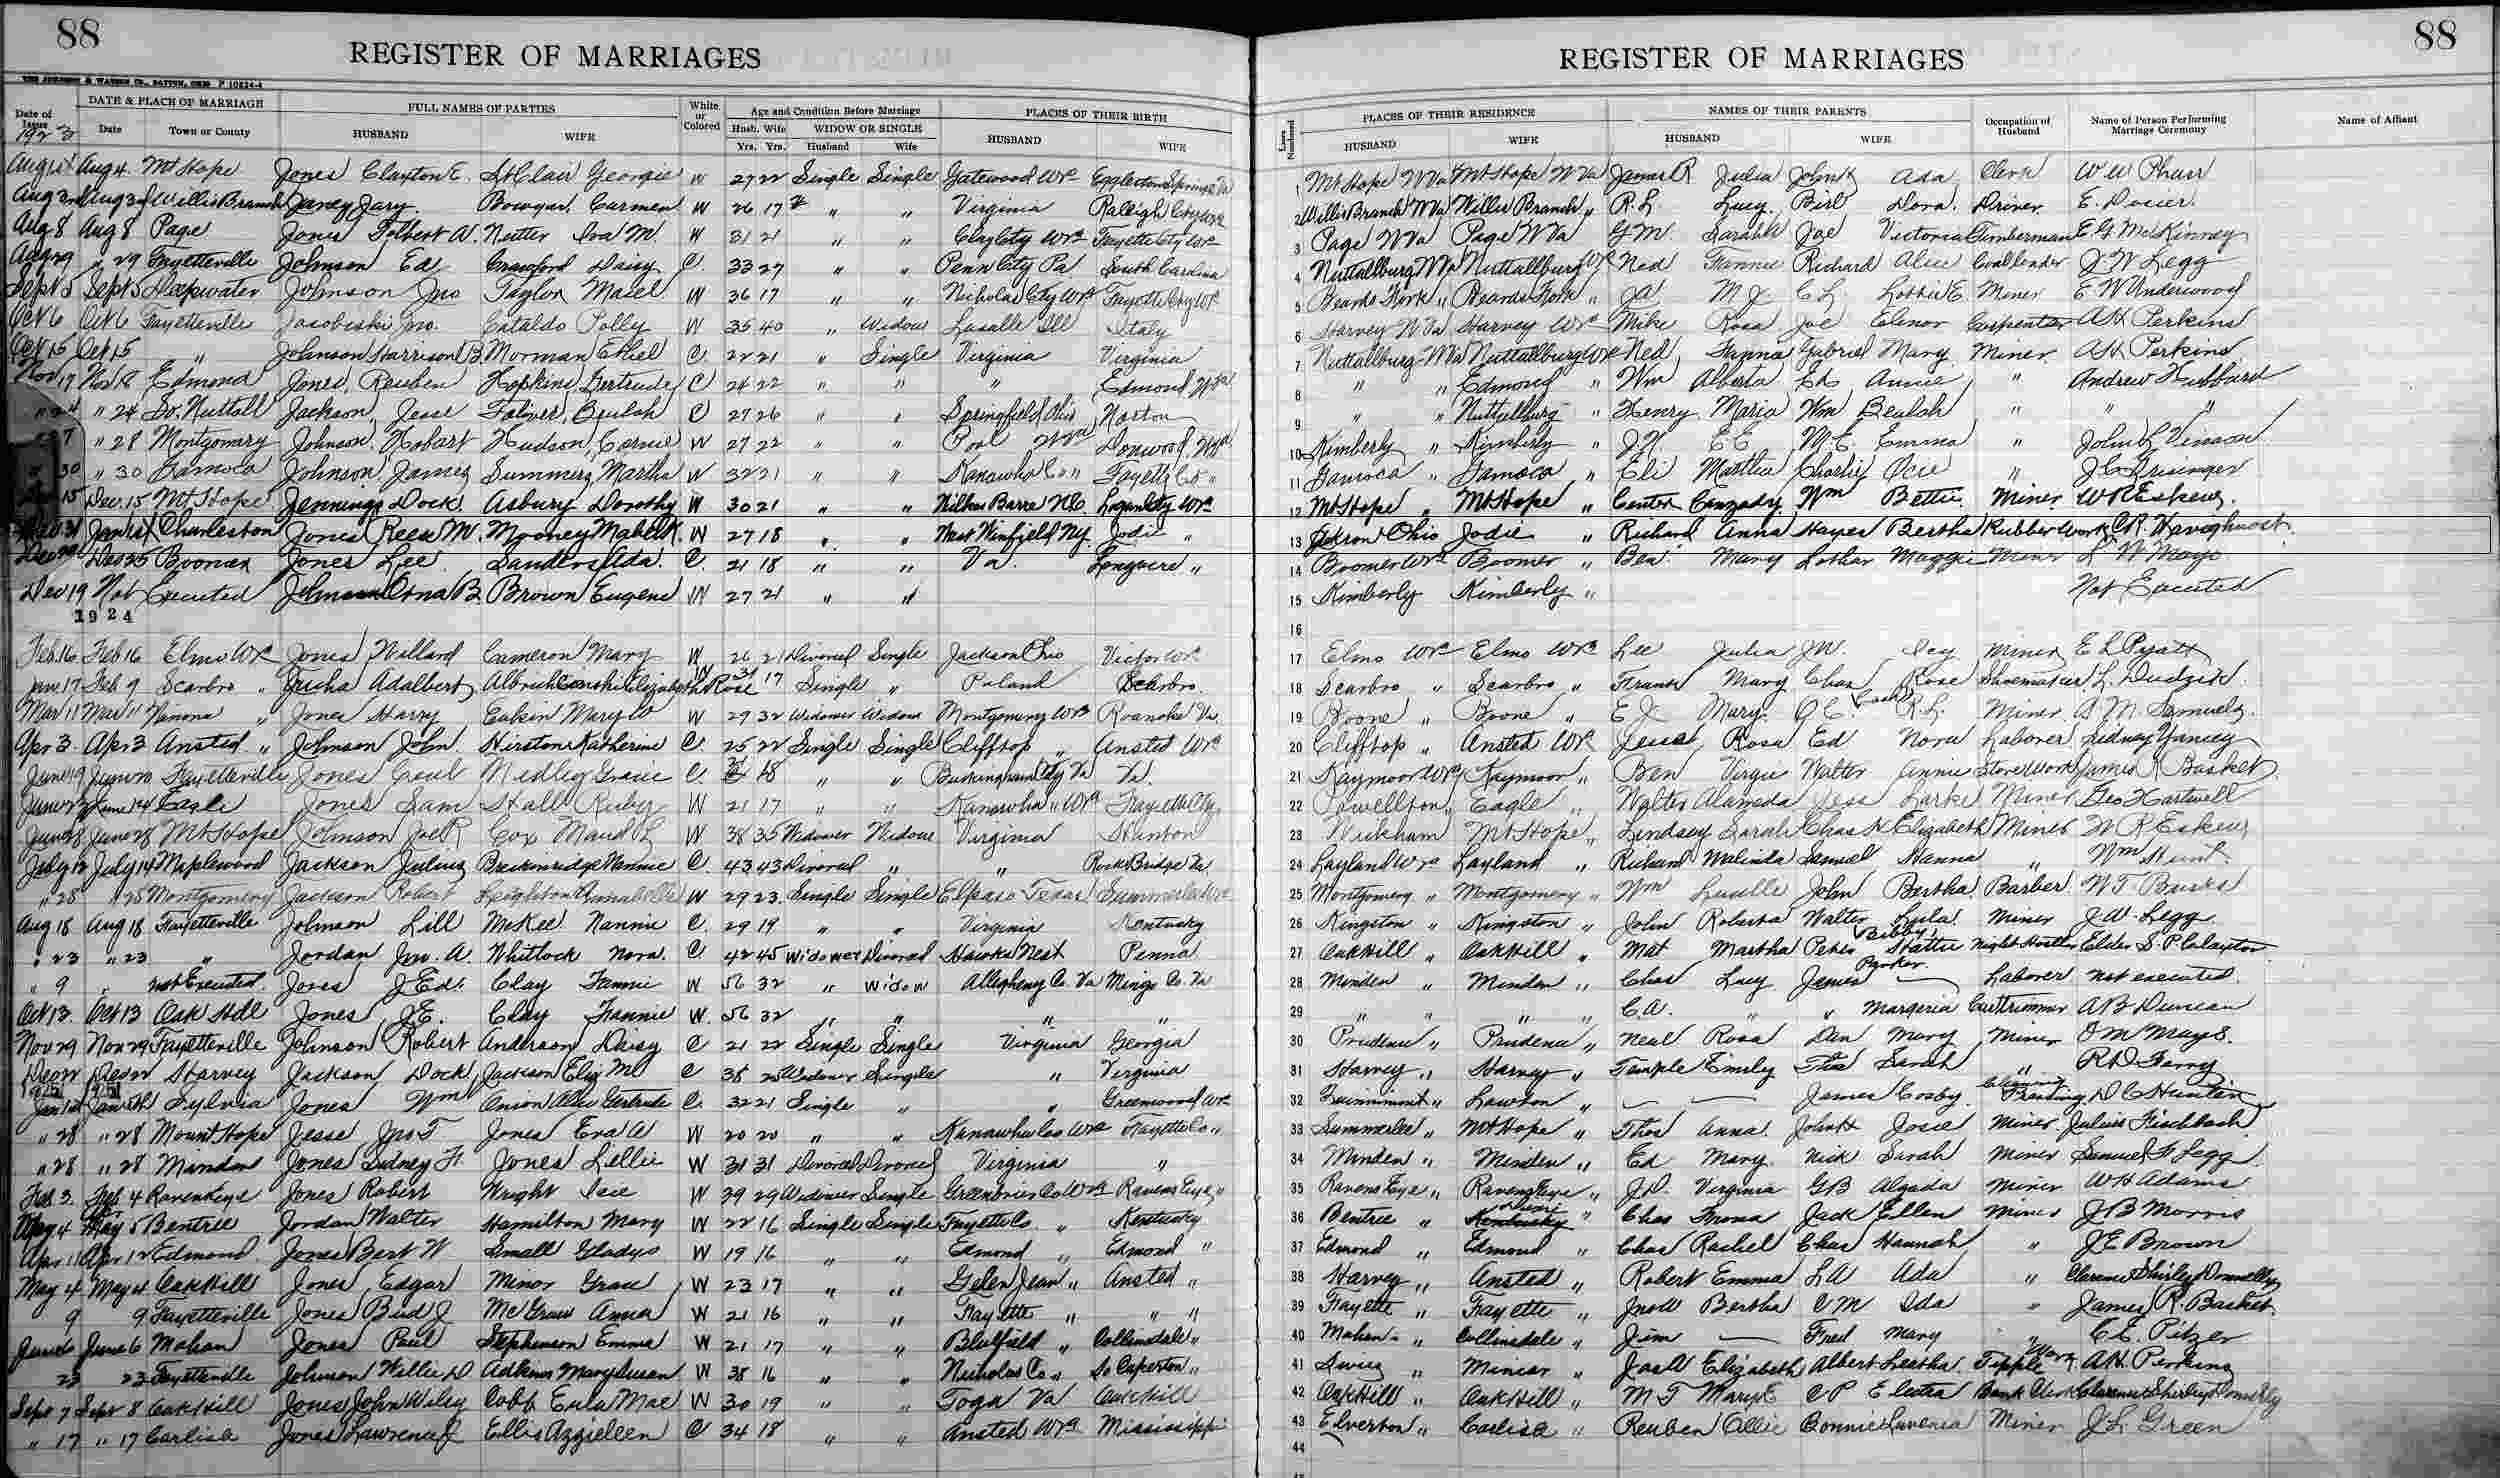 88
REGISTER OF MARRIAGES
REGISTER OF MARRIAGES
88
DATE & PLACE OF MARRIAGE FULL NAMES OF PARTIES White or Colored Age and Condition Before Marriage PLACES OF THEIR BIRTH PLACES OF THEIR RESIDENCE NAMES OF THEIR PARENTS Occupation of Husband Name of Person Performing Marriage Ceremony Name of Affiant
Date of Issue Date Town or County HUSBAND WIFE Hush. Wife WIDOW OR SINGLE HUSBAND WIFE Lines Numbered HUSBAND WIFE HUSBAND WIFE
1923 Yrs. Yrs. Husband Wife
Aug 4. Mt Hope Jones Clayton E. St Clair Georgie W 27 22 Single Single Gatewood WVa Eggleston Springs Va 1 Mt Hope W Va Mt Hope W Va James R Julia John Ada Clerk W W Pharr
Willis Branch Bowyer Carmen W 26 17 " " Virginia Raleigh 2 Willis Branch W Va Willis Branch " R. L. Lucy Birl Dora. Driver E. Dosier.
Aug 8 Aug 8 Page Jones Tolbert A. Nutter Iva M. W 31 21 " " Clay Cty WVa Fayette Cty WVa 3 Page W Va Page W Va G M. Sarah Joe Victoria Timberman E G McKinney
Aug 29 " 29 Fayetteville Johnson Ed Crawford Daisy C. 33 27 " " Penn City Pa South Carolina 4 Nuttallburg W Va Nuttallburg Ned Fannie Richard Alice Coal loader J W Legg
Sept 5 Sept 5 Deepwater Johnson Jno Taylor W 36 17 " " Nicholas Cty WVa Fayette Cty WVa 5 Beards Fork " Beards Fork " M J C L Lottie E Miner E W Underwood
Oct 6 Oct 6 Fayetteville Jno. Cataldo Polly W 35 40 " Widow Lasalle Ill Italy 6 Harvey W Va Harvey WVa Mike Rosa Joe Elenor Carpenter A H Perkins
Oct 15 Oct 15 " Johnson Harrison B Morman Ethel C. 22 21 " Single Virginia Virginia 7 Nuttallburg W Va Nuttallburg Ned Fanna Gabriel Mary Miner A H Perkins
Nov 17 Nov 18 Edmond Jones, Reuben Hopkins, Gertrude C 24 22 " " " Edmond WVa 8 " " Edmond " Wm Alberta Ed Annie " Andrew Hubbard
" 24 " 24 So. Nuttall Jackson, Jesse Toliver, Beulah C 27 26 " " Springfield Ohio 9 " " Nuttallburg " Henry Maria Wm Beulah " " "
" 28 Montgomery Johnson, Hobart Hudson, W 27 22 " " 10 Kimberly " Kimberly " E E M. E. Emma " John L Vinson
" 30 " 30 Gamoca Johnson James Summers, Martha W 32 21 " " Kanawha Co " Fayette Co " 11 Gamoca " Gamoca " Eli Martha Charlie Ocie "
15 Dec. 15 Mt Hope Jennings Dock. Asbury Dorothy W 30 21 " " Wilkes Barre NC. Logan Cty WVa 12 Mt Hope " Mt Hope " Wm Bettie Miner W R Eskew
Jan 1st Charleston Jones Rees M. Mooney Mabel K. W 27 18 " " West Winfield NY. Jodie " 13 Akron Ohio Jodie " Richard Anna Hayes Bertha Rubber Work
Dec 25 Boomer Jones Lee. Sanders Ada. C. 21 18 " " Va. Longacre " 14 Boomer WVa Boomer " Ben Mary Lother Maggie Miner L W Mays
Dec 19 Not Executed Johnson Orna B. Brown Eugene W 27 21 " " 15 Kimberly Kimberly " Not Executed
1924 16
Feb. 16 Feb 16 Elmo WVa Jones Willard Cameron Mary W 26 21 Divorced Single Jackson Ohio Victor WVa 17 Elmo WVa Elmo WVa Lee Julia J W. Icy Miner E L Pyatt
Jan 17 Feb 9 Scarbro " Adalbert Rose 17 Single " Poland Scarbro. 18 Scarbro " Scarbro " Frank Mary Chas Rose Shoemaker L. Dudzik
Mar 11 Mar 11 Winona " Jones Harry Eakin Mary W W 29 32 Widower Widow Montgomery WVa Roanoke Va. 19 Boone " Boone " E J. Mary. R. L. Miner S. M. Samuels
Apr 3. Apr 3 Ansted " Johnson John. Hirston Katherine C. 25 22 Single Single Clifftop " Ansted WVa 20 Clifftop " Ansted WVa Jesse Rosa Ed Nora Laborer Sidney Yancey
June 19 June 20 Fayetteville Jones Medley Gracie C. 18 " " Buckingham Cty Va Va. 21 Kaymoor WVa Kaymoor " Ben Virgie Walter Annie Store Work James R Basket
June 14 Eagle Jones Sam Hall Ruby W 21 17 " " Kanawha " WVa Fayette Cty 22 Powellton " Eagle " Walter Alameda Jess Miner Geo Hartwell
June 28 June 28 Mt Hope Johnson Joel R Cox Maud L W 38 35 Widower Widow Virginia Stanton 23 Wickham Mt Hope " Lindsey Sarah Chas H Elizabeth Miner W R Eskew
July 12 July 14 Maplewood Jackson Julius Breckenridge Nannie C. 43 43 Divorced " " Rock Bridge Va. 24 Layland WVa Layland " Richard Malinda Samuel Hanna " Wm Hunt.
" 28 " 28 Montgomery Jackson Robert Leighton Annabelle W 29 23 Single Single Elpaso Texas Summerlee WVa 25 Montgomery " Montgomery " Wm Luella John Bertha Barber W T
Aug 18 Aug 18 Fayetteville Johnson Lill McKee Nannie C. 29 19 " " Virginia Kentucky 26 Kingston " Kingston " John Roberta Walter Lula Miner J. W. Legg
" 23 " 23 " Jordan Jno. A. Whitlock Nora. C 42 45 Widower Divorced Hawks Nest Penna 27 Oak Hill " Oak Hill " Mat Martha Peter Bibby Hattie Night Hostler Elder S. P. Claxton
" 9 " not Executed. Jones J Ed. Clay Fannie W 56 32 " Widow Allegheny Co. Va Mingo Co. Va 28 Minden " Minden " Chas Lucy James Parker Laborer not executed
Oct 13. Oct 13 Oak Hill Jones J E. Clay Fannie W. 56 32 " " " " 29 " " " " C. A. " " Margeria Car Trimmer A B Duncan
Nov 29 Nov 29 Fayetteville Johnson Robert Anderson Daisy C 21 22 Single Single Virginia Georgia 30 Prudence " Prudence " Neal Rosa Dan Mary Miner O M Mays.
Harvey Jackson Dock Jackson Eliz M C 38 25 Widower Single " Virginia 31 Harvey " Harvey " Temple Emily Sarah "
1925 1925
Sylvia Jones Wm Onion Alice Gertrude C. 32 21 Single " " Greenwood WVa 32 Quinnimont " Lawton " James Cosby. Cleaning Pressing D C Hunter
" 28 " 28 Mount Hope Jesse Jno T Jones Eva A W 20 20 " " Kanawha Co WVa Fayette Co " 33 Summerlee " Mt Hope " Thos Anna. John H Josie Miner Julius Fischbach
" 28 " 28 Minden Jones Sidney H. Jones Lellie W 31 31 Divorced Divorced Virginia " 34 Minden " Minden " Ed Mary. Nick Sarah Miner Samuel F Legg.
Feb 3. Feb 4 Ravens Eye Jones Robert Wright Icie W 39 29 Widower Single Greenbrier Co WVa Ravens Eye " 35 Ravens Eye " Ravens Eye " J. D. Virginia G B Algada Miner W H Adams
May 4 May 5 Bentree Jordan Walter Hamilton Mary W 22 16 Single Single Fayette Co. " Kentucky 36 Bentree " Kentucky " Chas Jack Ellen Miner J B Morris
Apr 11 Apr 12 Edmond Jones Bert W Small Gladys W 19 16 " " Edmond " Edmond " 37 Edmond " Edmond " Chas Rachel Chas Hannah " J E Brown
May 4 May 4 Oak Hill Jones Edgar Minor Grace W 23 17 " " Glen Jean " Ansted " 38 Harvey " Ansted " Robert Emma L A Ada " Clarence Shirley Donnelly
9 9 Fayetteville Jones Bud J McGraw Anna W 21 16 " " Fayette " " " 39 Fayette " Fayette " Jno W Bertha C M Ida " James R. Basket.
June 6 June 6 Mahan Jones Paul Stephenson Emma W 21 17 " " Blufield " Collinsdale " 40 Mahan " Collinsdale " Jim Fred Mary " C. E. Pitzer
23 23 Fayetteville Johnson Willie D Adkins Mary Susan W 38 16 " " Nicholas Co " So Caperton " 41 " " Jas A Elizabeth Albert Leatha Tipple Work A H. Perkins
Sept 7 Sept 8 Oak Hill Jones John Wiley Cobb Eula Mae W 30 19 " " Toga Va Oak Hill 42 Oak Hill " Oak Hill " M T Mary E C P Electra Bank Clerk Clarence Shirley Donnelly
" 17 " 17 Carlisle Jones Lawrence J Ellis Azzieleen C 34 18 " " Ansted WVa Mississippi 43 Elverton " Carlisle " Reuben Ollie Bonnie Luvenia Miner J. L. Green
44